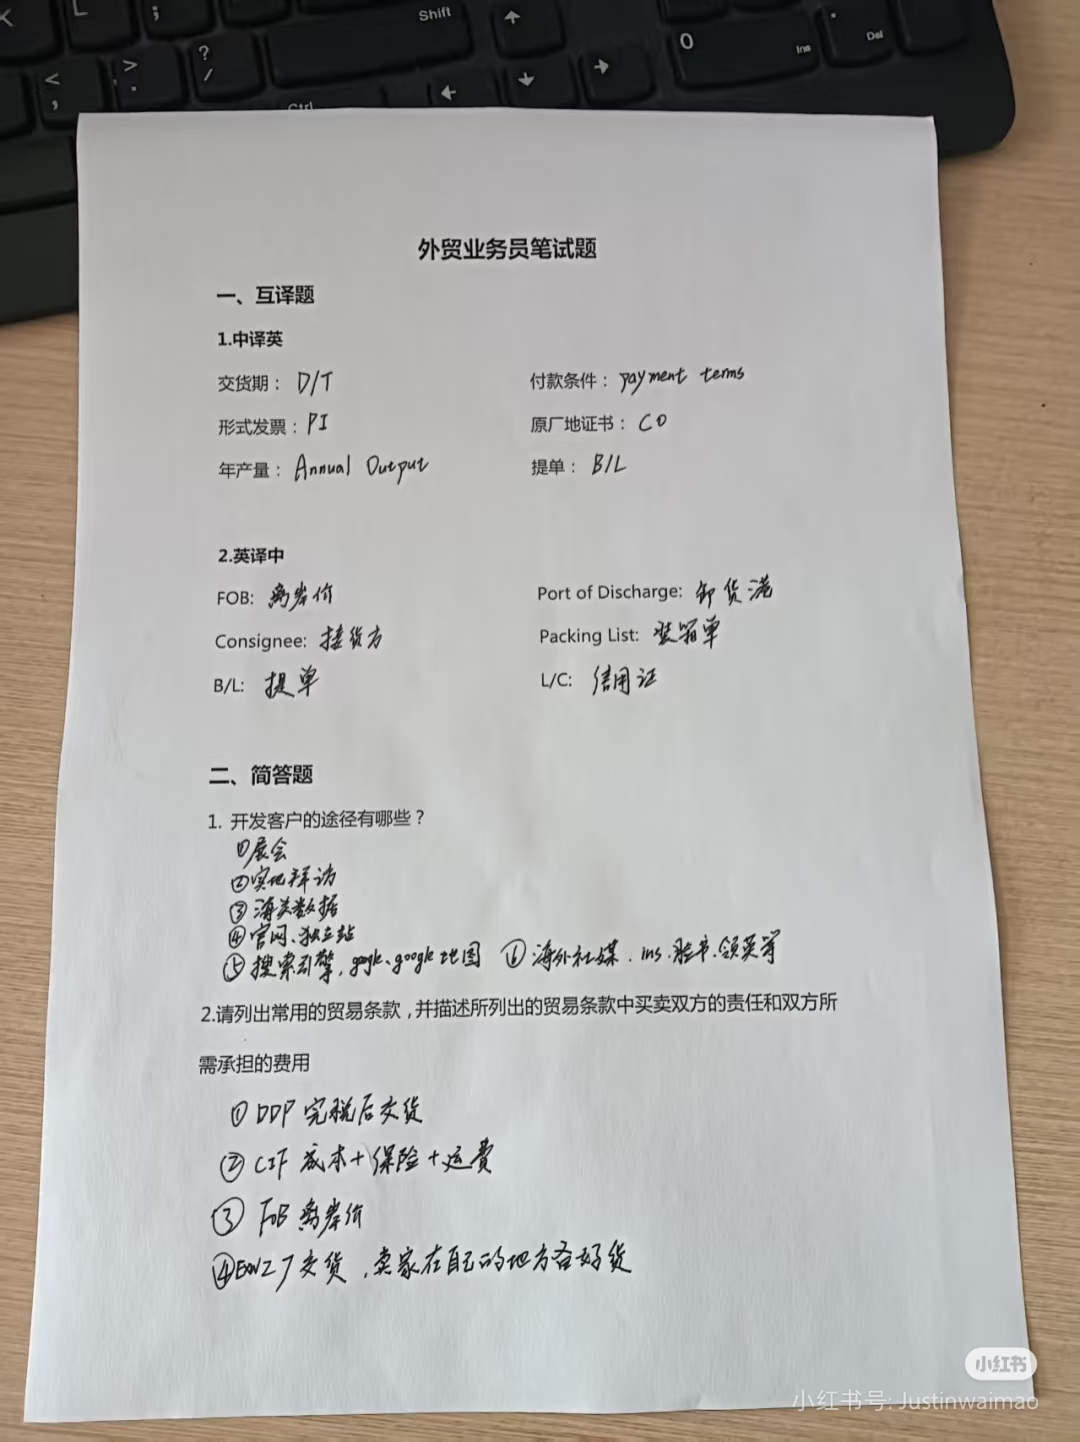 K
L
;
Shift
0
Ins
.
Del
<
,
>
.
?
/
Ctrl
外贸业务员笔试题
一、互译题
1.中译英
交货期： D/T 付款条件： payment terms
形式发票： PI 原厂地证书： CO
年产量： Annual Output 提单： B/L
2.英译中
FOB: 离岸价 Port of Discharge: 卸货港
Consignee: 接货方 Packing List: 装箱单
B/L: 提单 L/C: 信用证
二、简答题
1. 开发客户的途径有哪些？
①展会
②实地拜访
③海关数据
④官网、独立站
⑤搜索引擎，gogle、google地图 ⑥海外社媒．ins．脸书．领英等
2.请列出常用的贸易条款，并描述所列出的贸易条款中买卖双方的责任和双方所
需承担的费用
①DDP 完税后交货
②CIF 成本+保险+运费
③ FOB 离岸价
④EXW工厂交货，卖家在自己的地方备好货
小红书
小红书号: Justinwaimao